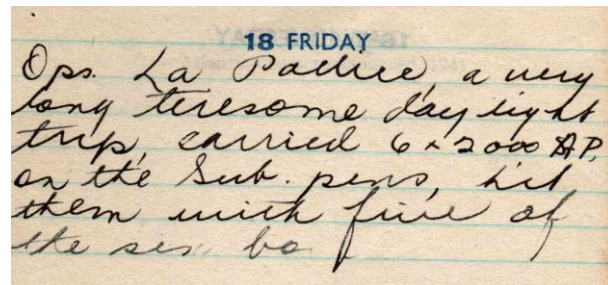 18 FRIDAY
Ops. La Pallice, a very
long teresome day light
trip, carried 6 x 2000 AP.
on the Sub. pens, hit
them with five of
the six bo